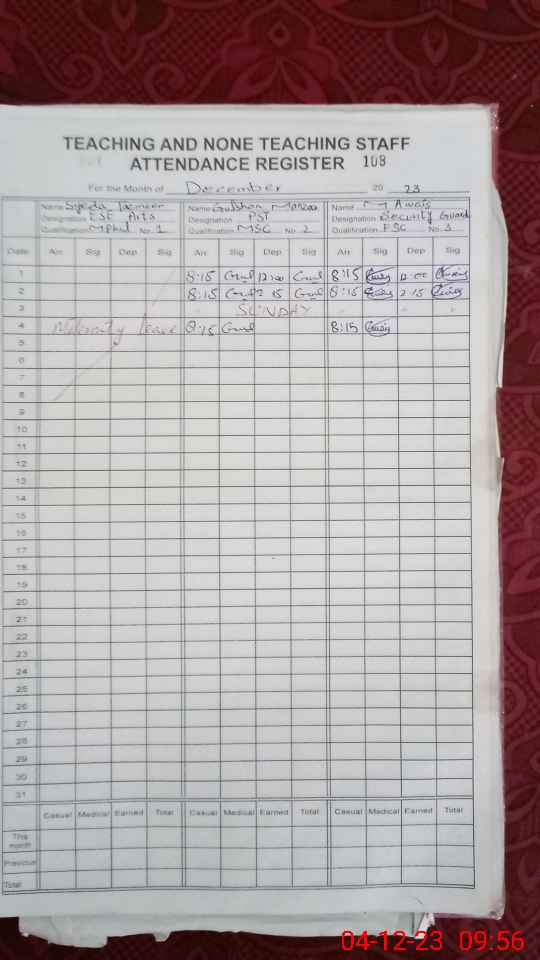 TEACHING AND NONE TEACHING STAFF
ATTENDANCE REGISTER 108
For the Month of December 20 23
Name Syeda Name Gulshan Name M Awais
Designation ESE Arts Designation PST Designation Security Guard
Qualification Mphil No. 1 Qualification MSC No. 2 Qualification FSC No. 3
Date Arr Sig Dep Sig Arr Sig Dep Sig Arr Sig Dep Sig
1 8:15 Gul 12:00 Gul 8:15 12:00
2 8:15 Gul 2 15 Gul 8:15 2 15
3 SUNDAY
4 Maternity leave 8:15 Gul 8:15
5
6
7
8
9
10
11
12
13
14
15
16
17
18
19
20
21
22
23
24
25
26
27
28
29
30
31
Casual Medical Earned Total Casual Medical Earned Total Casual Medical Earned Total
This month
Previous
Total
04-12-23 09:56